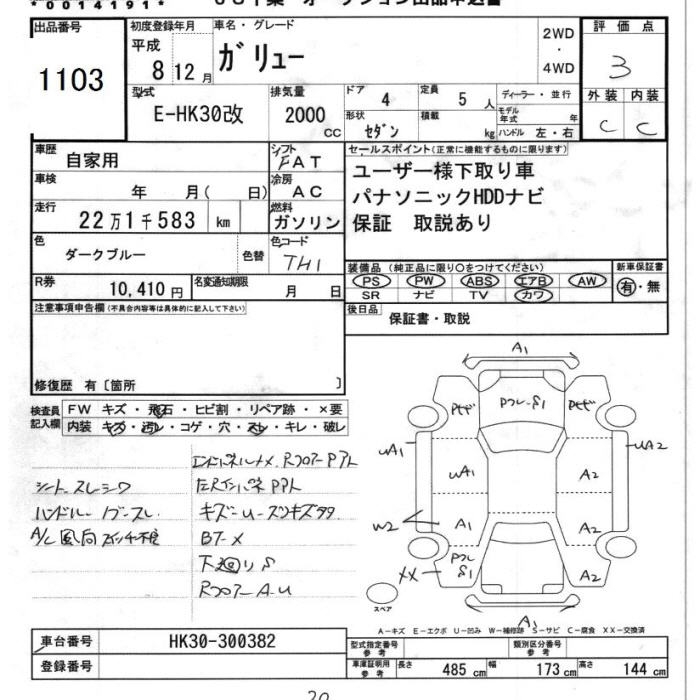 *0014191*
出品番号
1103
初度登録年月
平成
8 12月
車名・グレード
ガリュー
2WD
・
4WD
評価点
3
外装 内装
C C
型式
E-HK30改
排気量
2000
CC
ドア
4
定員
5 人
ディーラー・並行
形状
セダン
積載
kg
モデル年式
年
ハンドル 左・右
車歴
自家用
シフト
FAT
車検
年 月( 日)
冷房
AC
走行
22万1千583 km
燃料
ガソリン
色
ダークブルー
色替
色コード
TH1
R券
10,410円
名変通知期限
月 日
セールスポイント(正常に機能するものに限ります)
ユーザー様下取り車
パナソニックHDDナビ
保証 取説あり
装備品 (純正品に限り○をつけてください)
PS PW ABS エアB AW
SR ナビ TV カワ
新車保証書
有・無
後日品
保証書・取説
注意事項申告欄(不具合内容等は具体的に記入して下さい)
修復歴 有〔箇所 〕
検査員
記入欄
FW キズ・飛石・ヒビ割・リペア跡・×要
内装 キズ・汚レ・コゲ・穴・スレ・キレ・破レ
シート スレ シワ
BT-X
下廻りS
A1
Pモゼ
PフレS1
uA1
uA2
uA1
A2
A1
A2
W2
XX
Pフレ
S1
A2
A1
スペア
A-キズ E-エクボ U-凹み W-補修跡 S-サビ C-腐食 XX-交換済
車台番号
HK30-300382
登録番号
型式指定番号
参考
類別区分番号
参考
車庫証明用
参考
長さ 485 cm 幅 173 cm 高さ 144 cm